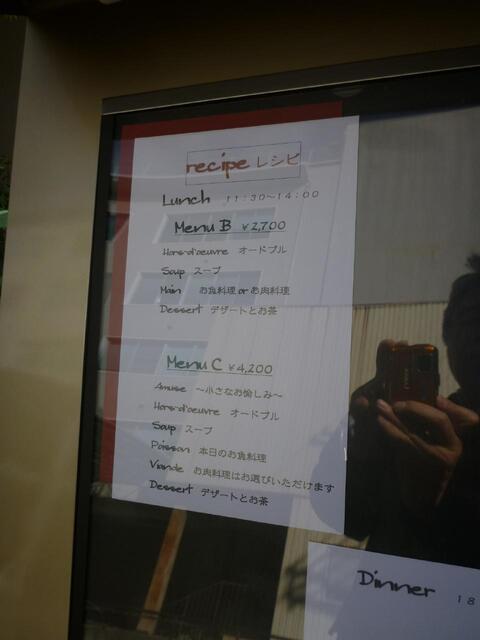 recipe レシピ
Lunch 11:30~14:00
Menu B ¥2,700
Hors-d'oeuvre オードブル
Soup スープ
Main お魚料理 or お肉料理
Dessert デザートとお茶
Menu C ¥4,200
Amuse ～小さなお愉しみ～
Hors-d'oeuvre オードブル
Soup スープ
Poisson 本日のお魚料理
Viande お肉料理はお選びいただけます
Dessert デザートとお茶
Dinner 18